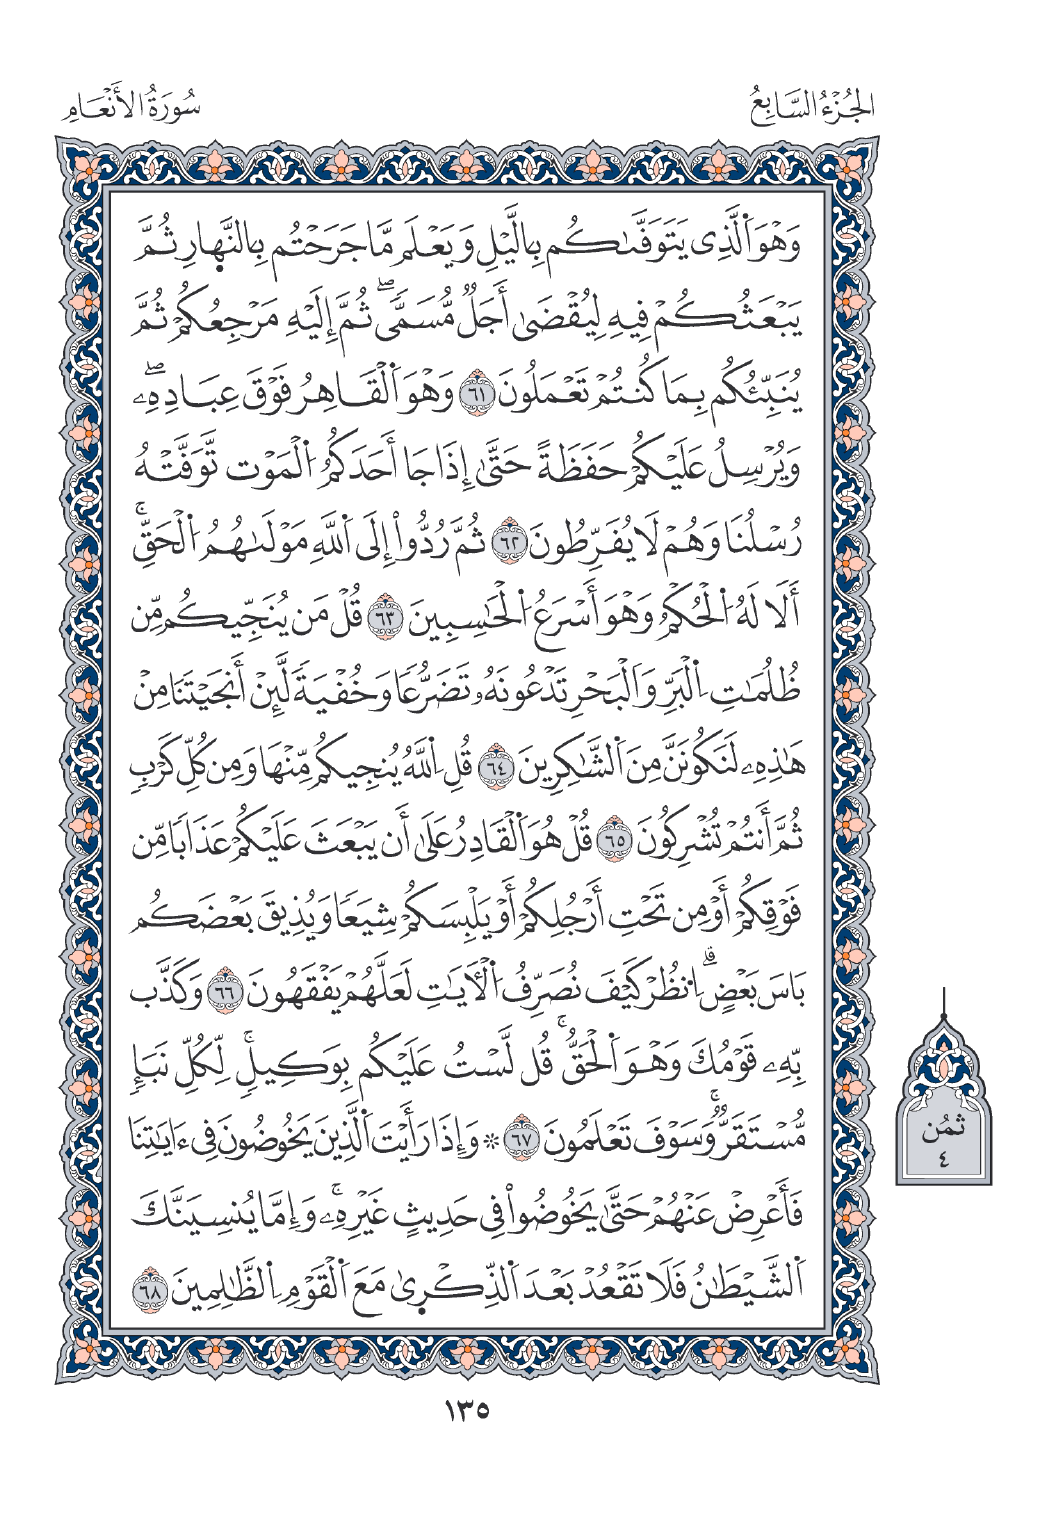 الجُزْءُ السَّابِعُ
سُورَةُ الأَنْعَامِ
وَهْوَ اَ۬لَّذِى يَتَوَفَّىٰكُم بِالَّيْلِ وَيَعْلَم مَّا جَرَحْتُم بِالنَّهِارِ ثُمَّ
يَبْعَثُكُمْ فِيهِ لِيُقْضَىٰ أَجَلٌ مُّسَمًّىۖ ثُمَّ إِلَيْهِ مَرْجِعُكُمْ ثُمَّ
يُنَبِّئُكُم بِمَا كُنتُمْ تَعْمَلُونَ ٦١ وَهْوَ اَ۬لْقَاهِرُ فَوْقَ عِبَادِهِۦۖ
وَيُرْسِلُ عَلَيْكُمْ حَفَظَةً حَتَّىٰ إِذَا جَا أَحَدَكُمُ اُ۬لْمَوْت تَّوَفَّتْهُ
رُسْلُنَا وَهُمْ لَا يُفَرِّطُونَ ٦٢ ثُمَّ رُدُّواْ إِلَى اَ۬للَّهِ مَوْلَىٰهُمُ اُ۬لْحَقِّۚ
أَلَا لَهُ اُ۬لْحُكْمُ وَهْوَ أَسْرَعُ اُ۬لْحَٰسِبِينَ ٦٣ قُلْ مَن يُنَجِّيكُم مِّن
ظُلُمَٰتِ اِ۬لْبَرِّ وَالْبَحْرِ تَدْعُونَهُۥ تَضَرُّعًا وَخُفْيَةً لَّئِنْ أَنجَيْتَنَا مِنْ
هَٰذِهِۦ لَنَكُونَنَّ مِنَ اَ۬لشَّٰكِرِينَ ٦٤ قُلِ اِ۬للَّهُ يُنجِيكُم مِّنْهَا وَمِن كُلِّ كَرْبٍ
ثُمَّ أَنتُمْ تُشْرِكُونَ ٦٥ قُلْ هُوَ اَ۬لْقَادِرُ عَلَىٰ أَن يَبْعَثَ عَلَيْكُمْ عَذَابًا مِّن
فَوْقِكُمْ أَوْ مِن تَحْتِ أَرْجُلِكُمْ أَوْ يَلْبِسَكُمْ شِيَعًا وَيُذِيقَ بَعْضَكُم
بَاسَ بَعْضٍۗ اِ۟نظُرْ كَيْفَ نُصَرِّفُ اُ۬لْأٓيَٰتِ لَعَلَّهُمْ يَفْقَهُونَ ٦٦ وَكَذَّب
بِّهِۦ قَوْمُكَ وَهْوَ اَ۬لْحَقُّۚ قُل لَّسْتُ عَلَيْكُم بِوَكِيلٍۚ لِّكُلِّ نَبَإٍ
مُّسْتَقَرٌّۚ وَسَوْفَ تَعْلَمُونَ ٦٧ * وَإِذَا رَأَيْتَ اَ۬لَّذِينَ يَخُوضُونَ فِىٓ ءَايَٰتِنَا
فَأَعْرِضْ عَنْهُمْ حَتَّىٰ يَخُوضُواْ فِى حَدِيثٍ غَيْرِهِۦۚ وَإِمَّا يُنسِيَنَّكَ
اَ۬لشَّيْطَٰنُ فَلَا تَقْعُدْ بَعْدَ اَ۬لذِّكْرِىٰ مَعَ اَ۬لْقَوْمِ اِ۬لظَّٰلِمِينَ ٦٨
ثمُن
٤
١٣٥